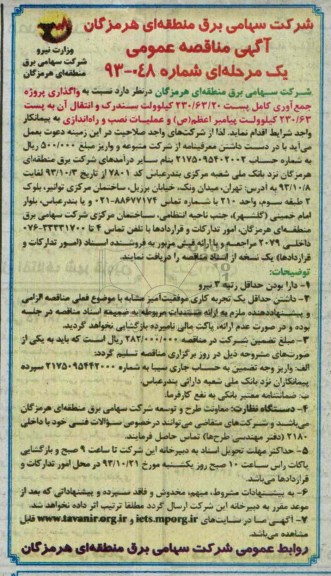 شرکت سهامی برق منطقه‌ای هرمزگان
آگهی مناقصه عمومی
یک مرحله‌ای شماره ۰۴۸-۹۳
وزارت نیرو
شرکت سهامی برق
منطقه‌ای هرمزگان
شرکت سهامی برق منطقه‌ای هرمزگان درنظر دارد نسبت به واگذاری پروژه
جمع‌آوری کامل پست ۲۳۰/۶۳/۲۰ کیلوولت سندرک و انتقال آن به پست
۲۳۰/۶۳ کیلوولت پیامبر اعظم(ص) و عملیات نصب و راه‌اندازی به پیمانکار
واجد شرایط اقدام نماید. لذا از شرکت‌های واجد صلاحیت در این زمینه دعوت بعمل
می‌آید با در دست داشتن معرفینامه از شرکت متبوعه و واریز مبلغ ۵۰۰/۰۰۰ ریال
به شماره حساب ۲۱۷۵۰۹۵۴۰۲۰۰۲ بنام سایر درآمدهای شرکت برق منطقه‌ای
هرمزگان نزد بانک ملی شعبه مرکزی بندرعباس کد ۷۸۰۱ از تاریخ ۹۳/۱۰/۳ لغایت
۹۳/۱۰/۸ به آدرس: تهران، میدان ونک، خیابان برزیل، ساختمان مرکزی توانیر، بلوک
۲ طبقه سوم، واحد ۲۱۰ با شماره تماس ۸۸۶۷۷۱۷۴-۰۲۱ و یا بندرعباس، بلوار
امام خمینی (گلشهر)، جنب ناحیه انتظامی، ساختمان مرکزی شرکت سهامی برق
منطقه‌ای هرمزگان، امور تدارکات و قراردادها با تلفن تماس ۴ تا ۳۳۳۳۱۷۰۰-۰۷۶
داخلی ۲۰۷۹ مراجعه و با ارائه فیش مزبور به فروشنده اسناد (امور تدارکات و
قراردادها) یک نسخه از اسناد مناقصه را دریافت نمایند.
توضیحات:
۱- دارا بودن حداقل رتبه ۳ نیرو
۲- داشتن حداقل یک تجربه کاری موفقیت‌آمیز مشابه با موضوع فعلی مناقصه الزامی
و پیشنهاددهنده ملزم به ارائه مستندات مربوطه به ضمیمه اسناد مناقصه در جلسه
بوده و در صورت عدم ارائه، پاکت مالی نامبرده بازگشایی نخواهد گردید.
۳- مبلغ تضمین شرکت در مناقصه ۲۸۲/۰۰۰/۰۰۰ ریال است که باید به یکی از
صورت‌های مشروحه ذیل در روز برگزاری مناقصه تسلیم گردد:
الف: واریز وجه تضمین به حساب جاری سیبا به شماره ۲۱۷۵۰۹۵۴۴۲۰۰۰ سپرده
پیمانکاران نزد بانک ملی شعبه دارائی بندرعباس.
ب: ضمانتنامه معتبر بانکی به نفع کارفرما.
۴- دستگاه نظارت: معاونت طرح و توسعه شرکت سهامی برق منطقه‌ای هرمزگان
می‌باشد و شرکت‌های متقاضی می‌توانند درخصوص سئوالات فنی خود با داخلی
۲۱۸۰ (دفتر مهندسی طرح‌ها) تماس حاصل فرمایند.
۵- حداکثر مهلت تحویل اسناد به دبیرخانه این شرکت تا ساعت ۹ صبح و بازگشایی
پاکات راس ساعت ۱۰ صبح روز یکشنبه مورخ ۹۳/۱۰/۲۱ در محل امور تدارکات و
قراردادها می‌باشد.
۶- به پیشنهادات مشروط، مبهم، مخدوش و فاقد سپرده و پیشنهاداتی که بعد از
موعد مقرر به دبیرخانه این شرکت ارسال گردد مطلقا ترتیب اثر داده نخواهد شد.
۷- آگهی صدا در سایت‌های iets.mporg.ir و www.tavanir.org.ir قابل
مشاهده می‌باشد.
روابط عمومی شرکت سهامی برق منطقه‌ای هرمزگان